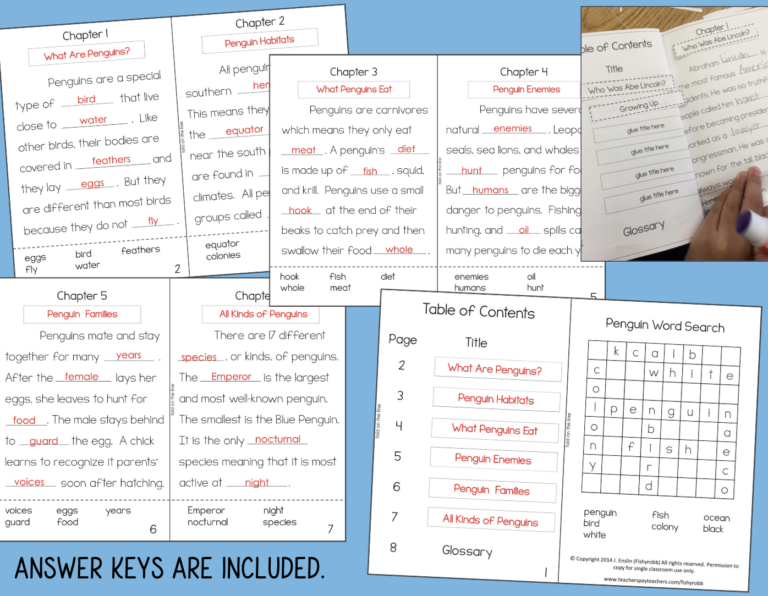 Chapter 1
What Are Penguins?
Penguins are a special
type of bird that live
close to water . Like
other birds, their bodies are
covered in feathers and
they lay eggs . But they
are different than most birds
because they do not fly .
eggs bird feathers
fly water
2
Chapter 2
Penguin Habitats
All pengui
southern
This means they
the equator
near the south
are found in
climates. All pe
groups called
equator
colonies
fold on the line
Chapter 3
What Penguins Eat
Penguins are carnivores
which means they only eat
meat . A penguin's diet
is made up of fish , squid,
and krill. Penguins use a small
hook at the end of their
beaks to catch prey and then
swallow their food whole .
hook fish diet
whole meat
fold on the line
Chapter 4
Penguin Enemies
Penguins have severa
natural enemies . Leop
seals, sea lions, and whales
hunt penguins for fo
But humans are the bigg
danger to penguins. Fishing
hunting, and oil spills ca
many penguins to die each y
enemies oil
humans hunt
5
ble of Contents
Title
Who Was Abe Lincoln?
Growing Up
glue title here
glue title here
glue title here
glue title here
Glossary
Chapter 1
Who Was Abe Lincoln?
Abraham Lincoln is
most famous
idents. He was so truthf
ople called him
efore becoming presiden
orked as a lawyer
ongressman. He was a
nown for the tall, blac
always wore
Chapter 5
Penguin Families
Penguins mate and stay
together for many years .
After the female lays her
eggs, she leaves to hunt for
food . The male stays behind
to guard the egg. A chick
learns to recognize it parents'
voices soon after hatching.
voices eggs years
guard food
6
fold on the line
Chapte
All Kinds of Penguins
There are 17 different
species , or kinds, of penguins.
The Emperor is the largest
and most well-known penguin.
The smallest is the Blue Penguin.
It is the only nocturnal
species meaning that it is most
active at night .
Emperor night
nocturnal species
7
Table of Contents
Page Title
2 What Are Penguins?
3 Penguin Habitats
4 What Penguins Eat
5 Penguin Enemies
6 Penguin Families
7 All Kinds of Penguins
8 Glossary
1
fold on the line
fold on the line
Penguin Word Search
k c a l b
c w h i t e
o
l p e n g u i n
o b a
n f i s h e
y r c
d o
penguin fish ocean
bird colony black
white
© Copyright 2014 J. Emlin (Fishyrobb) All rights reserved. Permission to
copy for single classroom use only.
www.teacherspayteachers.com/fishyrobb
ANSWER KEYS ARE INCLUDED.